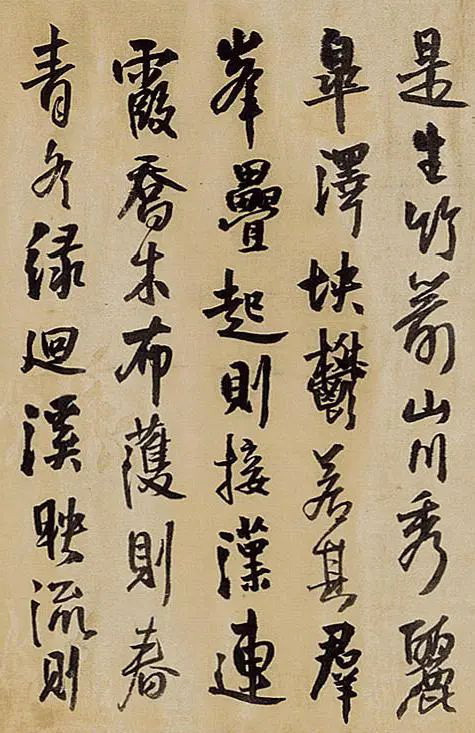 是生竹箭山川秀麗
皐澤坱鬱若其羣
峯疊起則接漢連
霞喬木布濩則春
青冬緑迴溪映流則